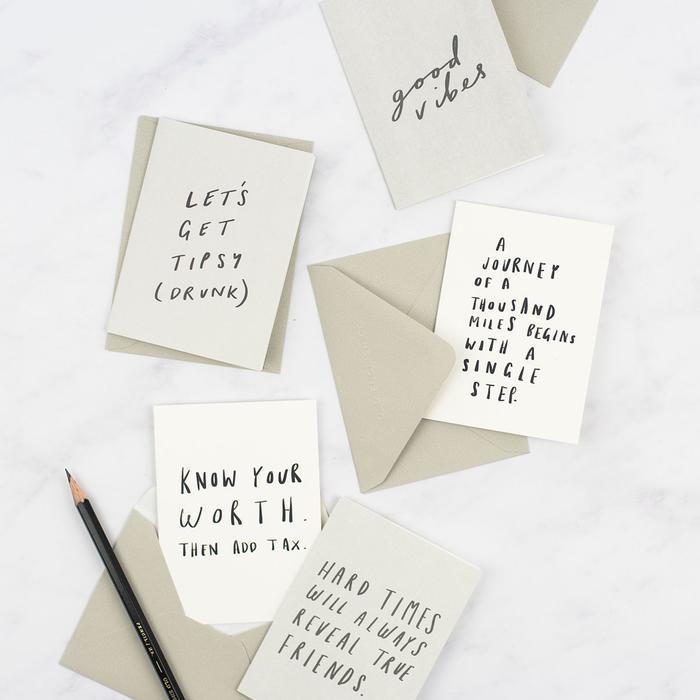 good
vibes
LET'S
GET
TIPSY
(DRUNK)
A
JOURNEY
OF A
THOUSAND
MILES BEGINS
WITH A
SINGLE
STEP.
KNOW YOUR
WORTH.
THEN ADD TAX.
HARD TIMES
WILL ALWAYS
REVEAL TRUE
FRIENDS.